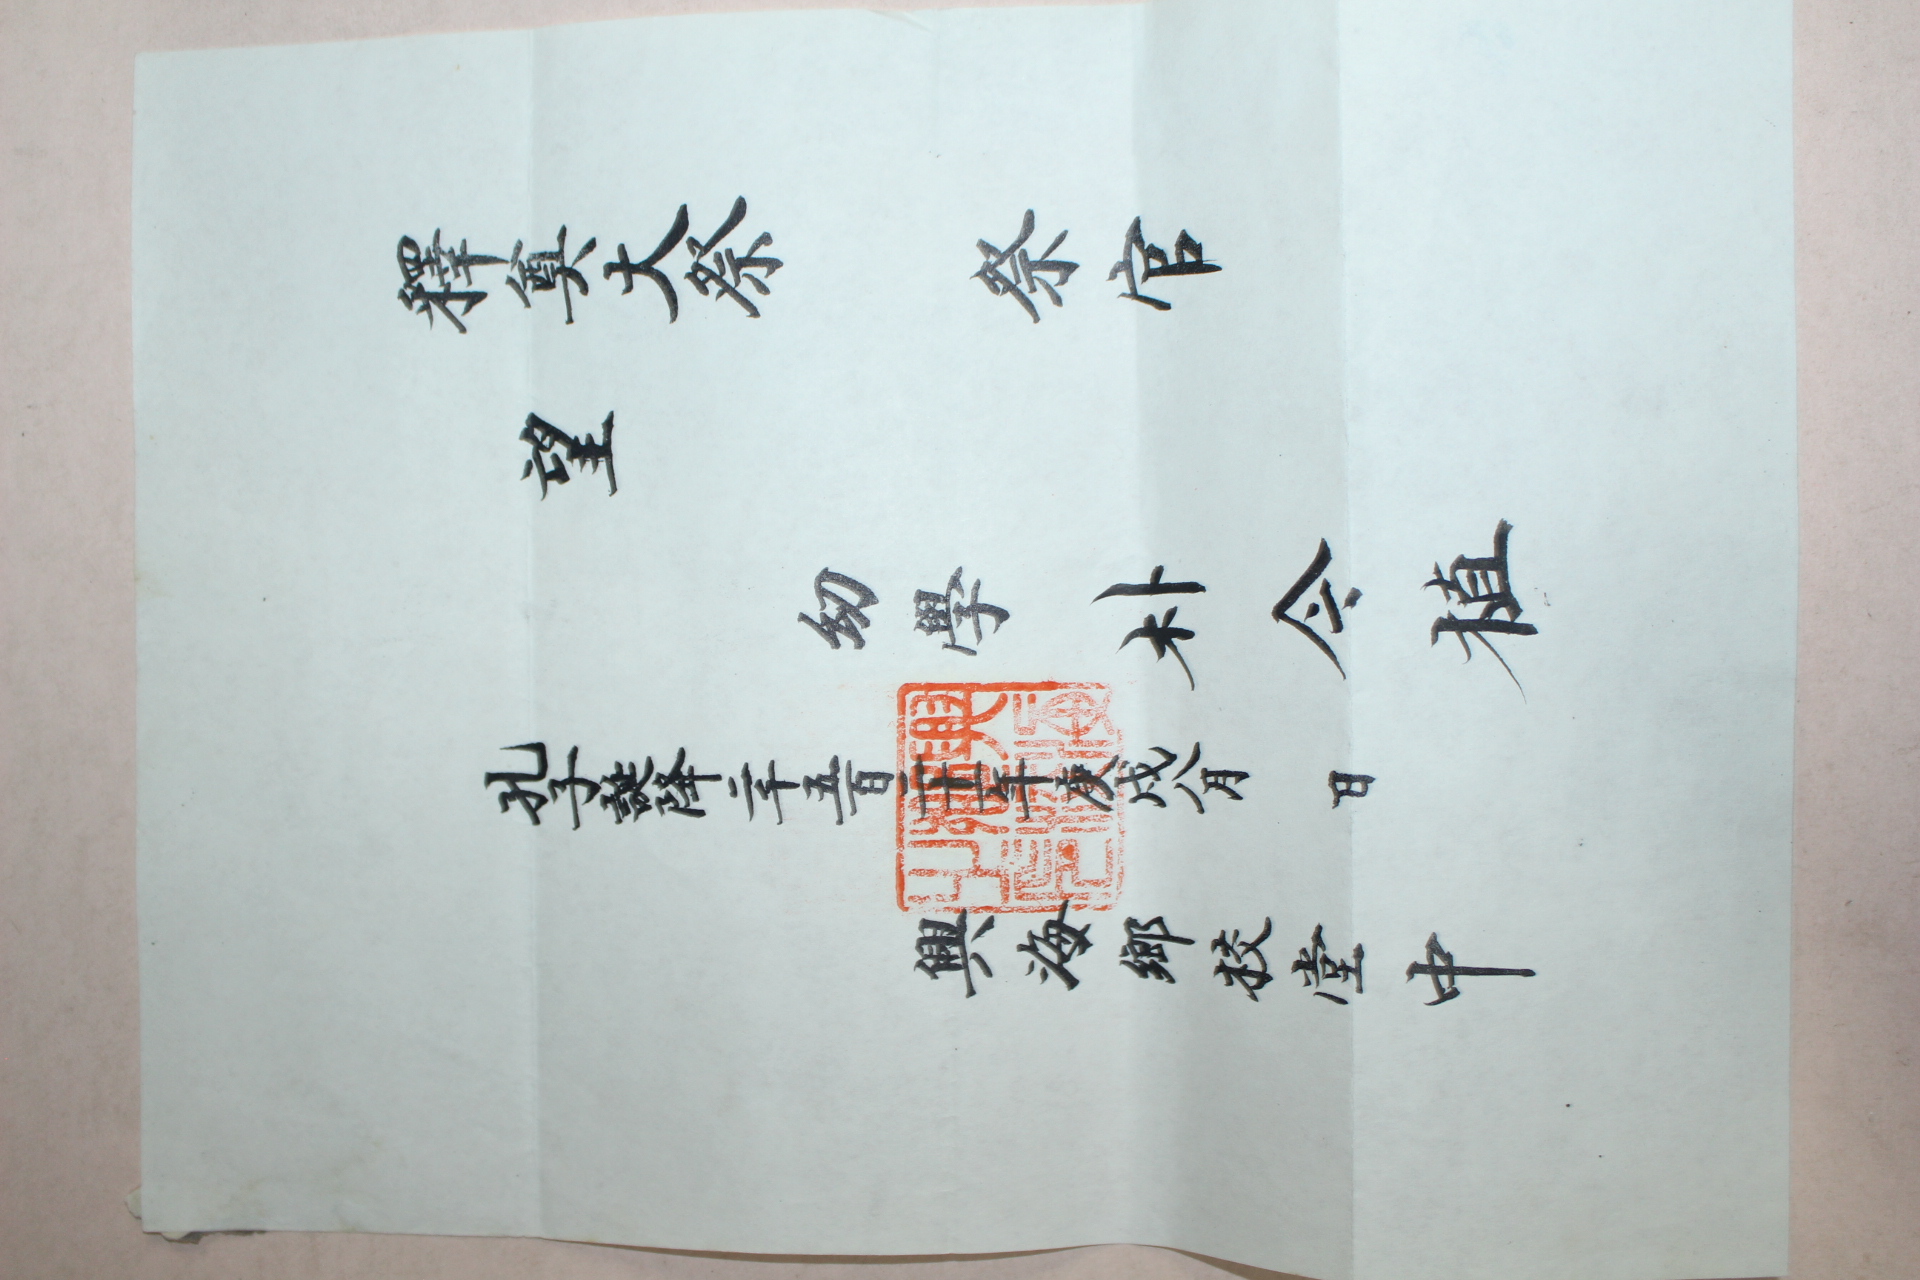 釋奠大祭 祭官
望
幼學 朴令植
孔子誕降二千五百二十一年庚戌八月 日
興海鄉校堂中